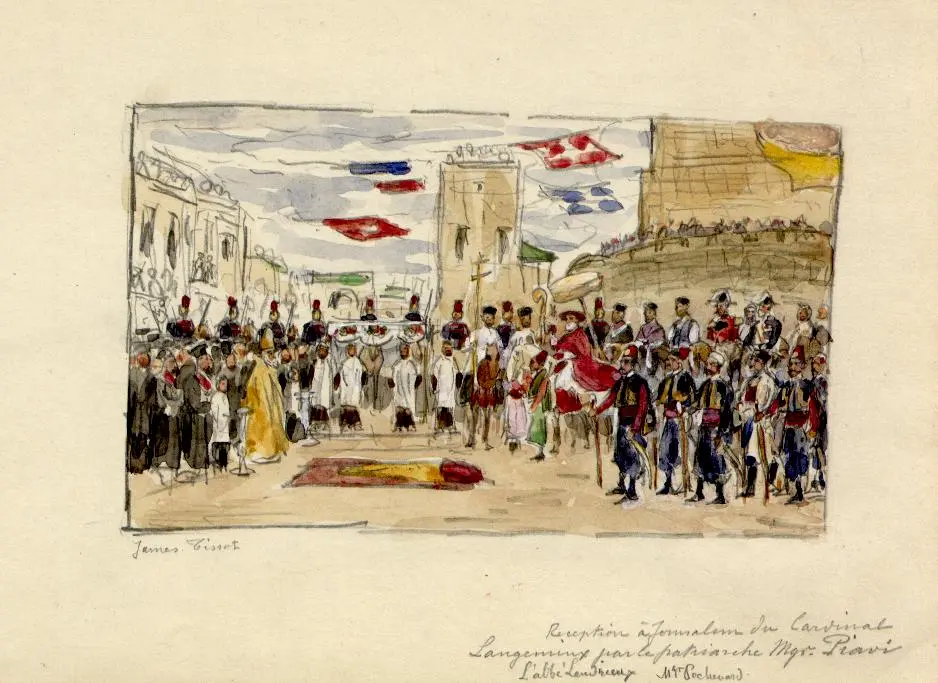 James Tissot
Reception à Jerusalem du Cardinal
Langemiux par le patriarche Mgr. Piavi
L'abbé Landrieux Mgr